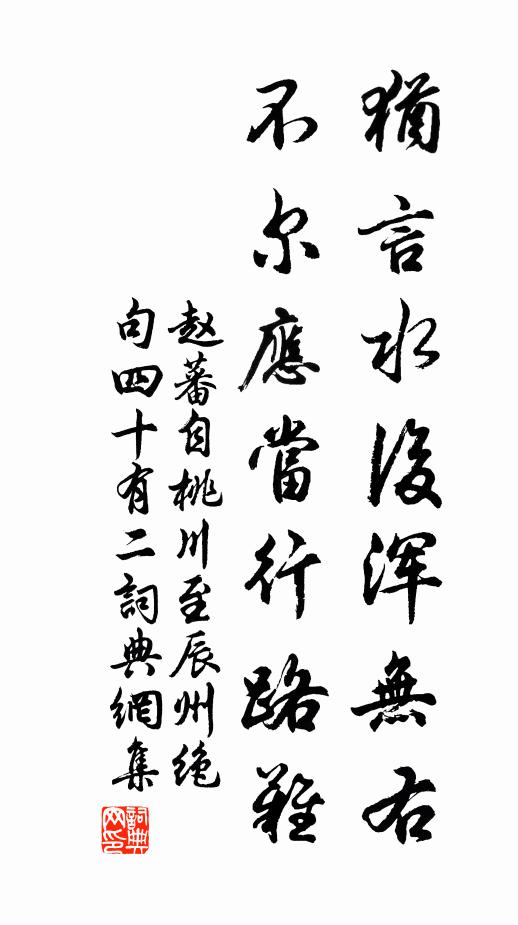 猶言水後渾無右
不尔應當行路難
赵蕃自桃川至辰州绝
句四十有二詞典網集
詞典
网印